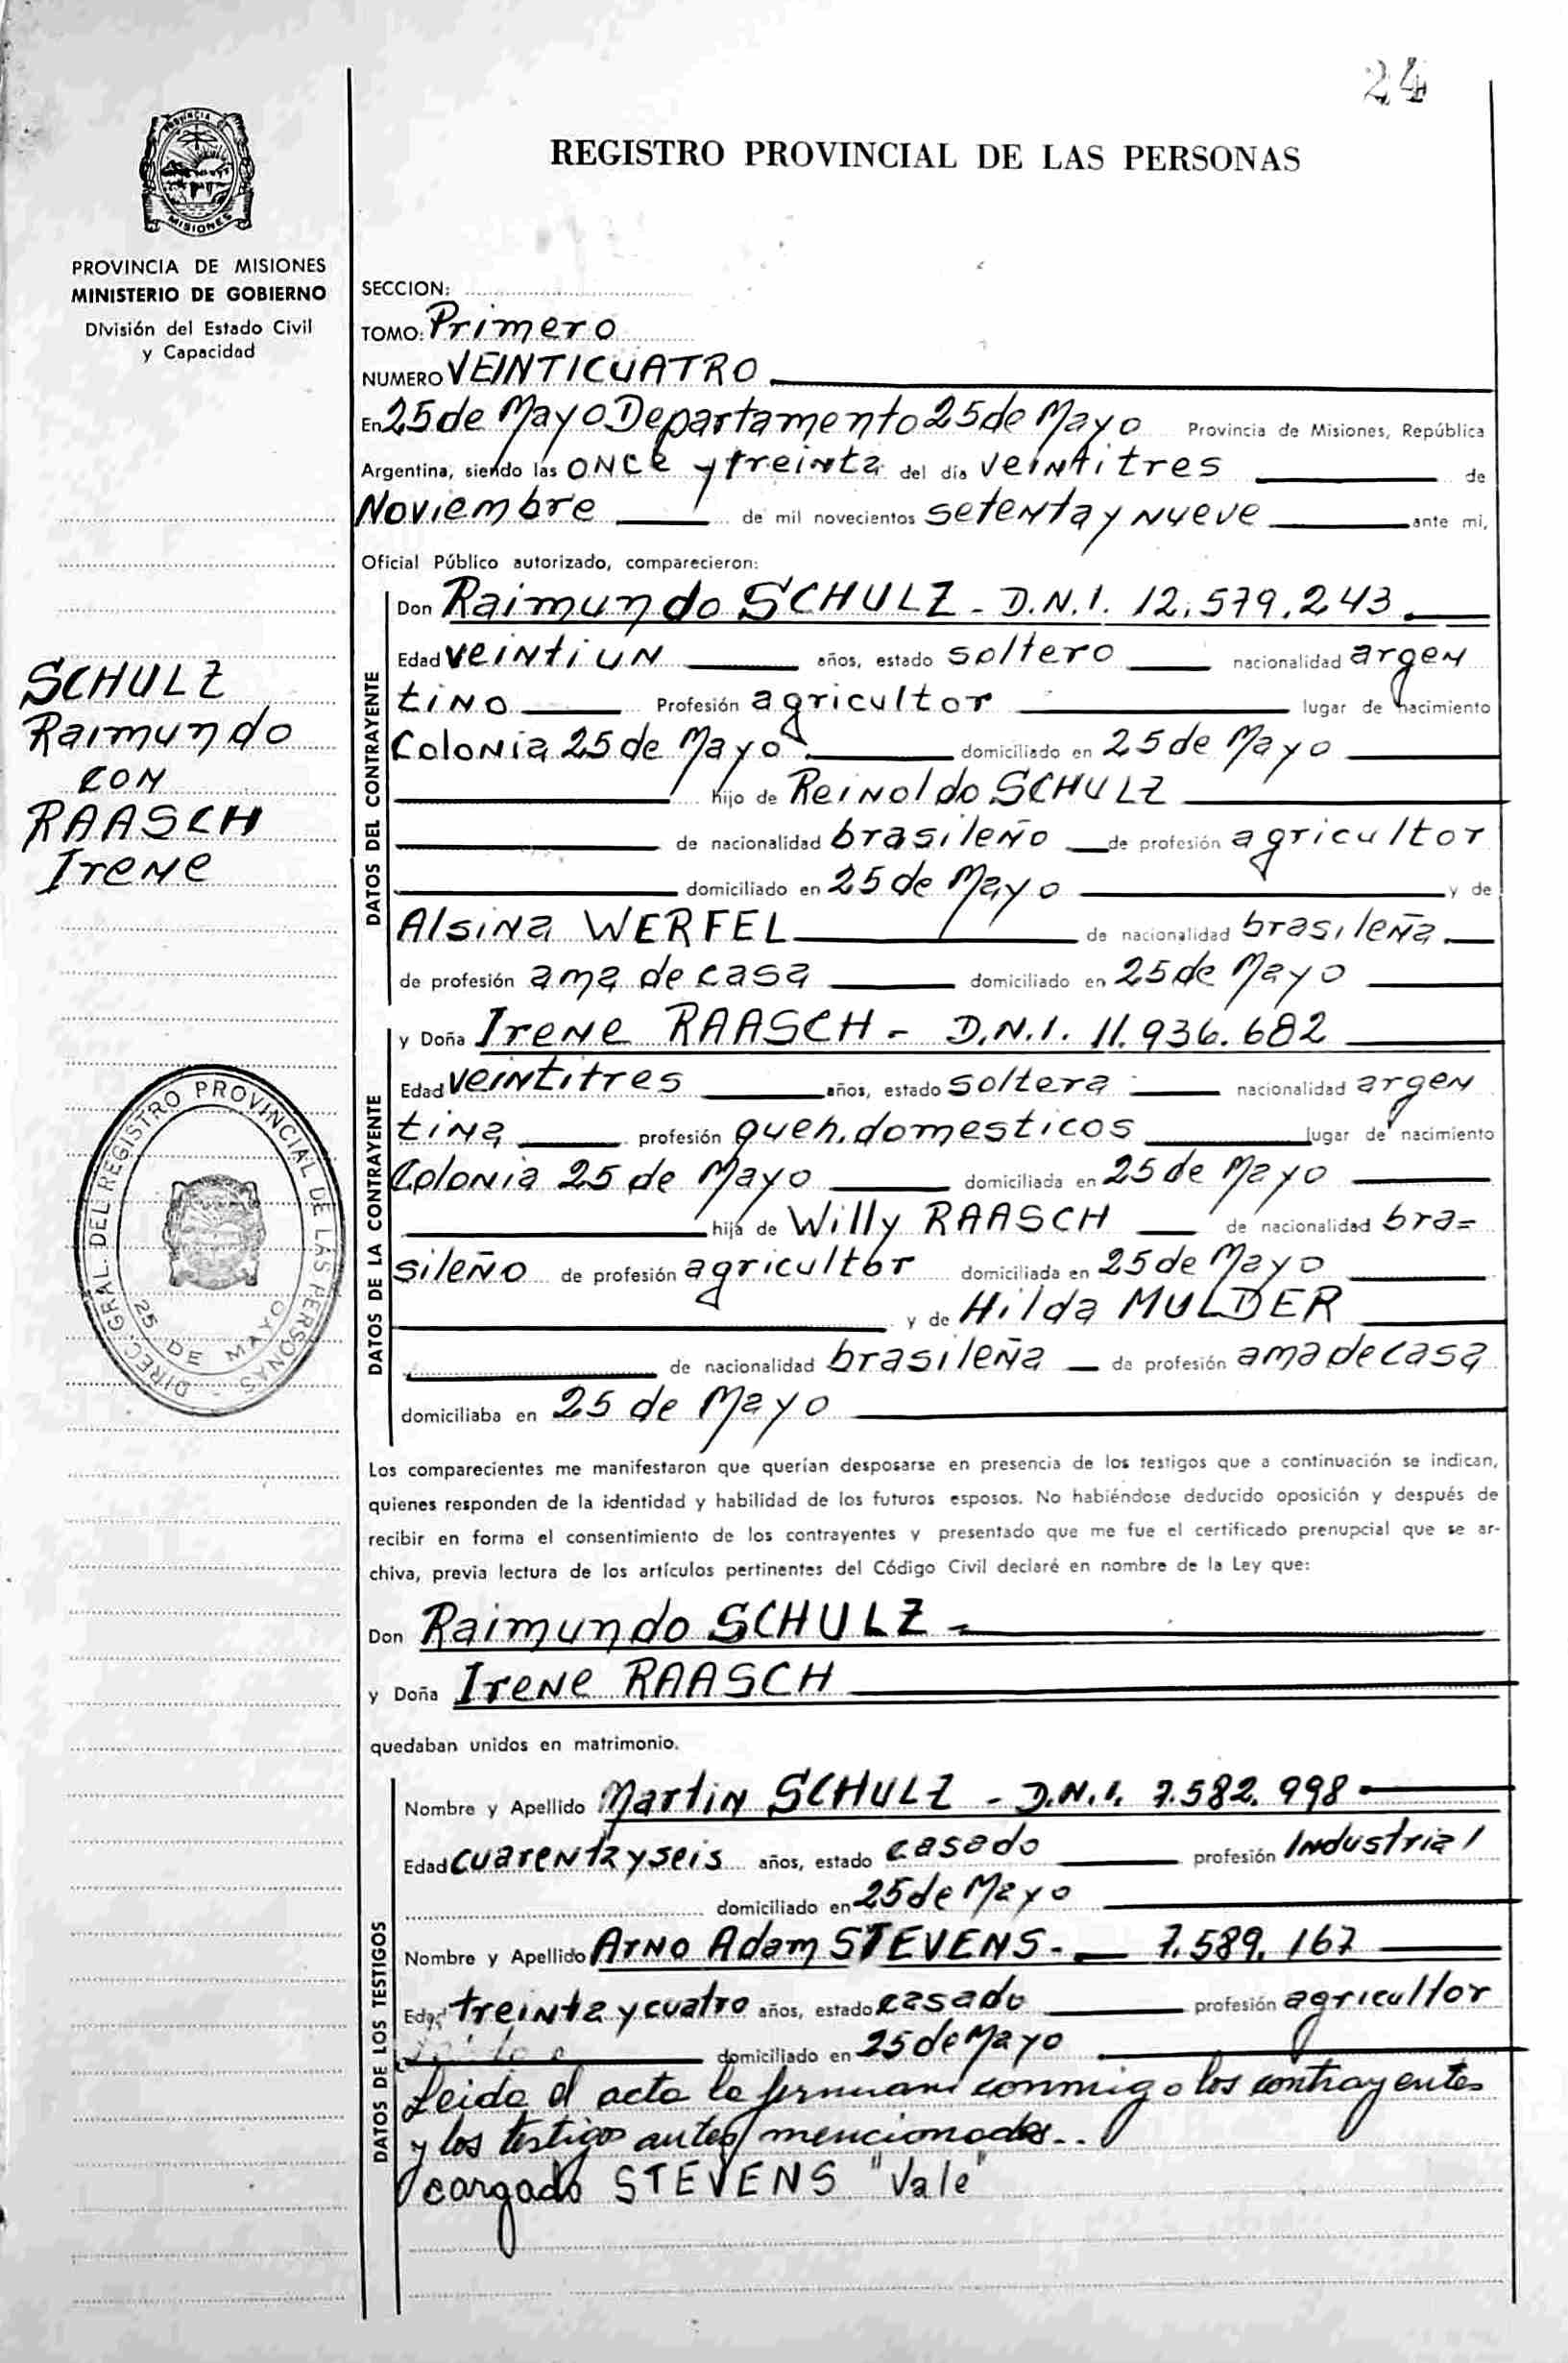 24
PROVINCIA
MISIONES
REGISTRO PROVINCIAL DE LAS PERSONAS
PROVINCIA DE MISIONES
MINISTERIO DE GOBIERNO
División del Estado Civil
y Capacidad
SECCION:
TOMO: Primero
NUMERO VEINTICUATRO
En 25 de Mayo Departamento 25 de Mayo Provincia de Misiones, República
Argentina, siendo las ONCE y treinta del día veintitres de
Noviembre de mil novecientos setenta y nueve ante mi,
Oficial Público autorizado, comparecieron:
SCHULZ
Raimundo
CON
RAASCH
Irene
DATOS DEL CONTRAYENTE
Don Raimundo SCHULZ - D.N.I. 12.579.243
Edad veintiun años, estado soltero nacionalidad argen
tino Profesión agricultor lugar de nacimiento
Colonia 25 de Mayo domiciliado en 25 de Mayo
hijo de Reinoldo SCHULZ
de nacionalidad brasileño de profesión agricultor
domiciliado en 25 de Mayo y de
Alsina WERFEL de nacionalidad brasileña
de profesión ama de casa domiciliado en 25 de Mayo
DATOS DE LA CONTRAYENTE
y Doña Irene RAASCH - D.N.I. 11.936.682
Edad veintitres años, estado soltera nacionalidad argen
tina profesión queh. domesticos lugar de nacimiento
Colonia 25 de Mayo domiciliada en 25 de Mayo
hija de Willy RAASCH de nacionalidad bra=
sileño de profesión agricultor domiciliada en 25 de Mayo
y de Hilda MULDER
de nacionalidad brasileña de profesión ama de casa
domiciliaba en 25 de Mayo
DIREC. GRAL. DEL REGISTRO PROVINCIAL DE LAS PERSONAS -
25 DE MAYO
Los comparecientes me manifestaron que querían desposarse en presencia de los testigos que a continuación se indican,
quienes responden de la identidad y habilidad de los futuros esposos. No habiéndose deducido oposición y después de
recibir en forma el consentimiento de los contrayentes y presentado que me fue el certificado prenupcial que se ar-
chiva, previa lectura de los artículos pertinentes del Código Civil declaré en nombre de la Ley que:
Don Raimundo SCHULZ -
y Doña Irene RAASCH
quedaban unidos en matrimonio.
DATOS DE LOS TESTIGOS
Nombre y Apellido Martin SCHULZ - D.N.I. 7.582.998
Edad cuarenta y seis años, estado casado profesión Industrial
domiciliado en 25 de Mayo
Nombre y Apellido Arno Adam STEVENS - 7.589.167
Edad treinta y cuatro años, estado casado profesión agricultor
domiciliado en 25 de Mayo
Leida el acta la firman conmigo los contrayentes
y los testigos antes mencionados..
cargado STEVENS "Vale"